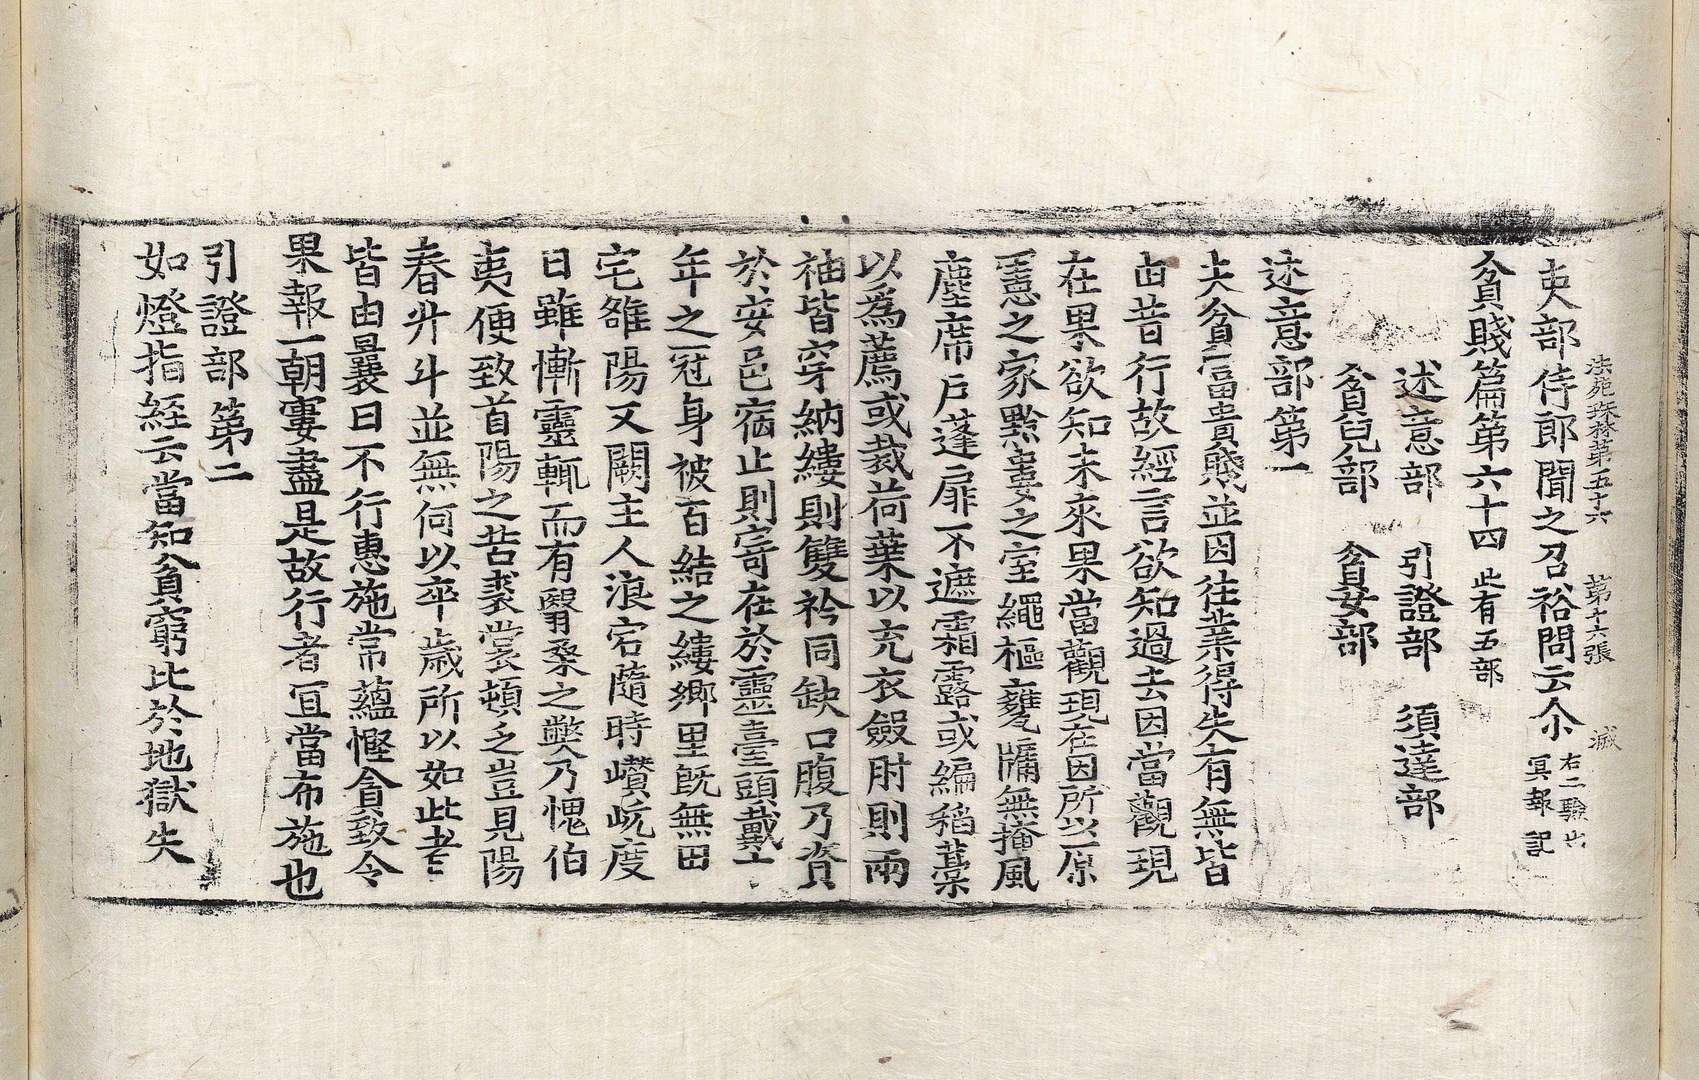 法苑珠林第五十六 第十六張 滅
吏部侍郎聞之召裕問云尒右二驗出冥報記
貧賤篇第六十四此有五部
述意部 引證部 須達部
貧兒部 貧女部
述意部第一
夫貧富貴賤並因往業得失有無皆
由昔行故經言欲知過去因當觀現
在果欲知未來果當觀現在因所以原
憲之家黔婁之室繩樞甕牖無掩風
塵席戶蓬扉不遮霜露或編稻藁
以為薦或裁荷葉以充衣斂肘則兩
袖皆穿納縷則雙衿同缺口腹乃資
於安邑宿止則寄在於靈臺頭戴十
年之冠身被百結之縷鄉里旣無田
宅雒陽又闕主人浪宕隨時巑岏度
日雖慚靈輒而有翳桑之弊乃愧伯
夷便致首陽之苦裘裳頓乏豈見陽
春升斗並無何以卒歲所以如此者
皆由曩日不行惠施常蘊慳貪致令
果報一朝窶盡是故行者冝當布施也
引證部第二
如燈指經云當知貧窮比於地獄失